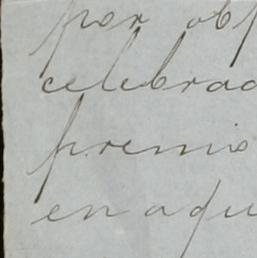 por obp
celebrad
premio
en aqu